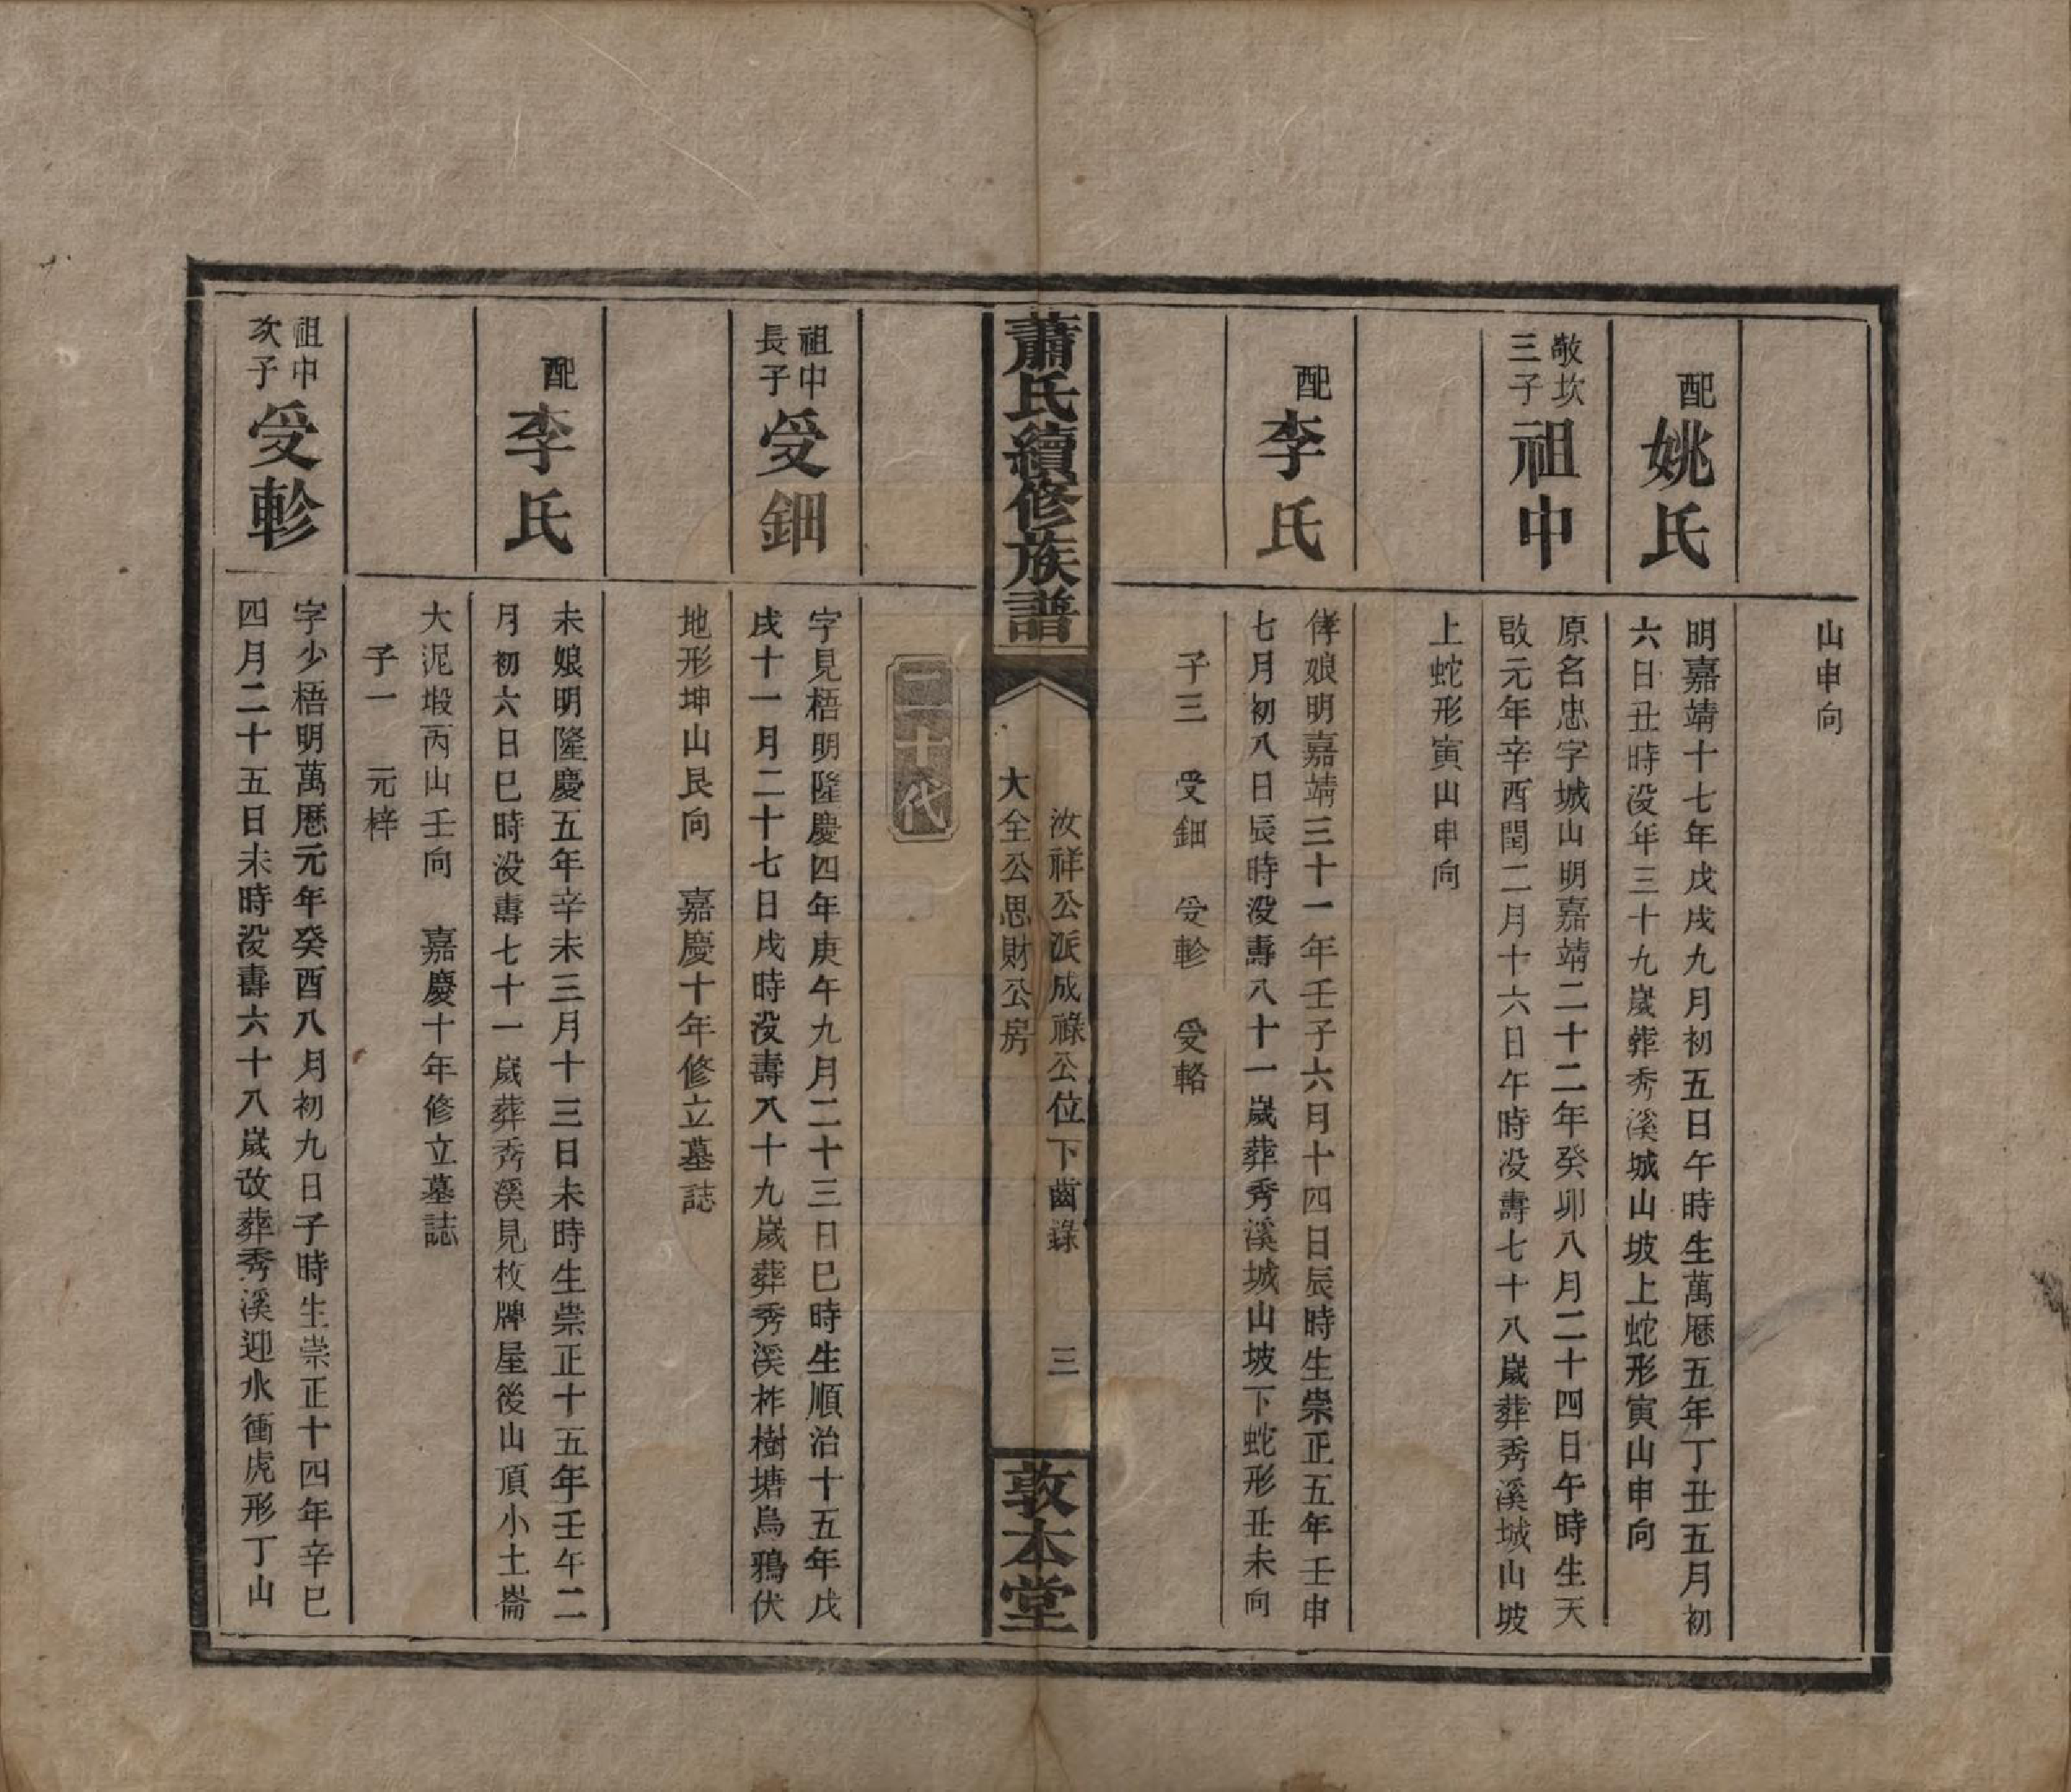 山申向
配
姚氏
明嘉靖十七年戊戌九月初五日午時生萬厯五年丁丑五月初
六日丑時没年三十九嵗葬秀溪城山坡上蛇形寅山申向
敬坎
三子
祖中
原名忠字城山明嘉靖二十二年癸卯八月二十四日午時生天
啟元年辛酉閏二月十六日午時没壽七十八嵗葬秀溪城山坡
上蛇形寅山申向
配
李氏
偆娘明嘉靖三十一年壬子六月十四日辰時生崇正五年壬申
七月初八日辰時没壽八十一嵗葬秀溪城山坡下蛇形丑未向
子三 受鈿 受軫 受輅
蕭氏續修族譜
汝祥公派成祿公位下齒錄 三
大全公思財公房
敦本堂
二十代
祖中
長子
受鈿
字見梧明隆慶四年庚午九月二十三日巳時生順治十五年戊
戌十一月二十七日戌時没壽八十九嵗葬秀溪柞樹塘烏鴉伏
地形坤山艮向 嘉慶十年修立墓誌
配
李氏
未娘明隆慶五年辛未三月十三日未時生崇正十五年壬午二
月初六日巳時没壽七十一嵗葬秀溪見枚牌屋後山頂小土崙
大泥塅丙山壬向 嘉慶十年修立墓誌
子一 元梓
祖中
次子
受軫
字少梧明萬厯元年癸酉八月初九日子時生崇正十四年辛巳
四月二十五日未時没壽六十八嵗改葬秀溪迎水衝虎形丁山